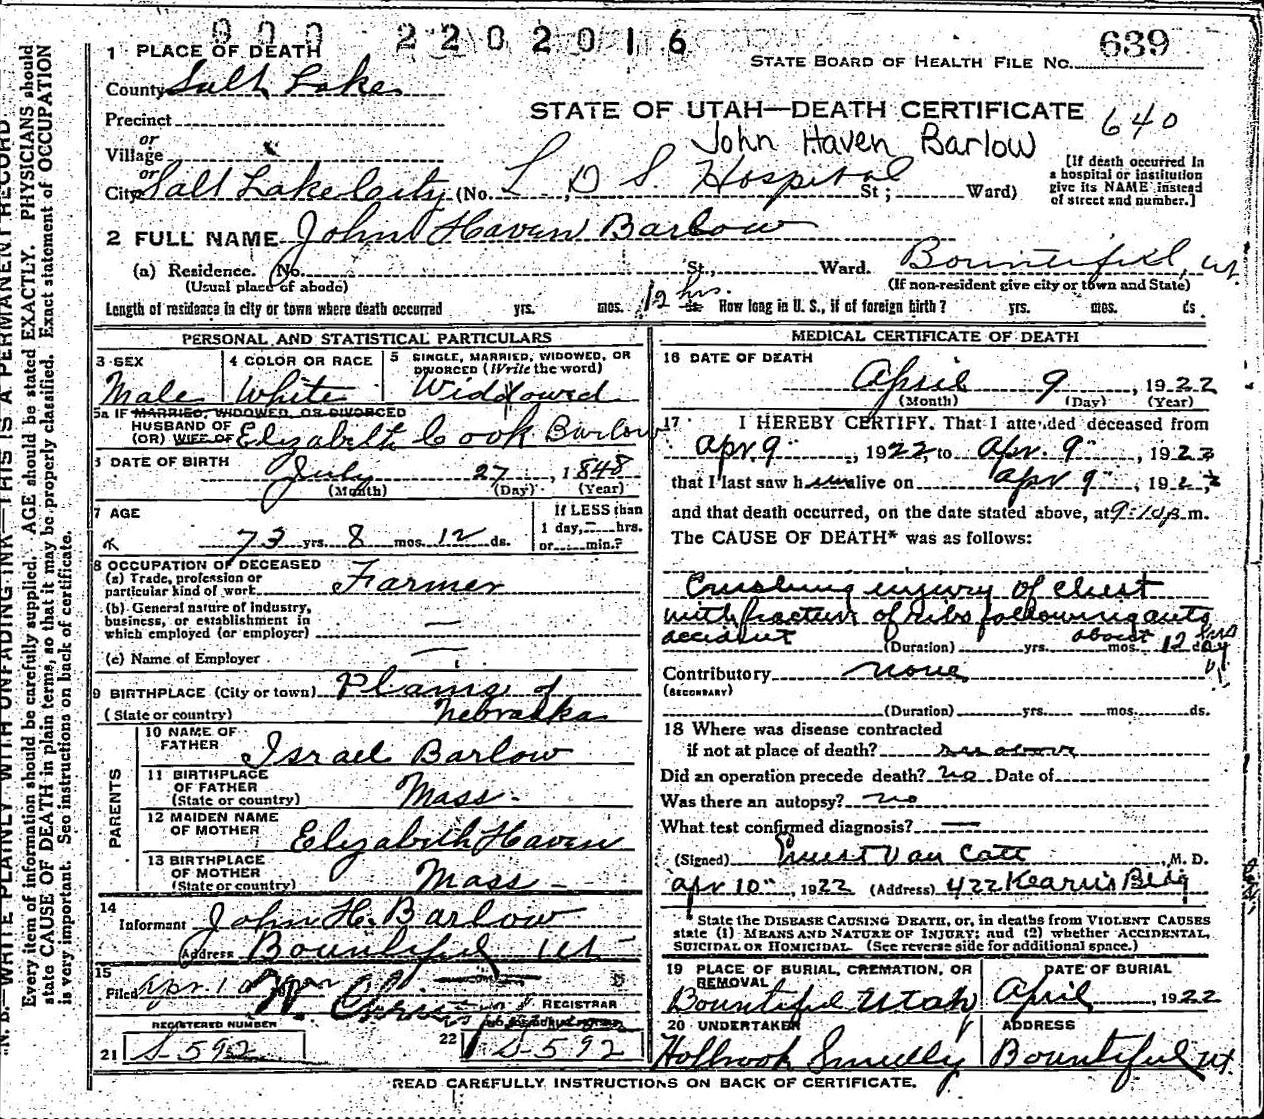 900 2202016
639
1 PLACE OF DEATH
STATE BOARD OF HEALTH FILE No.
County Salt Lake
STATE OF UTAH—DEATH CERTIFICATE 640
Precinct
John Haven Barlow
or
Village
or
City Salt Lake City (No. L. D. S. Hospital St; Ward)
[If death occurred in a hospital or institution give its NAME instead of street and number.]
2 FULL NAME John Haven Barlow
(a) Residence. No. St., Ward. Bountiful, Ut.
(Usual place of abode) (If non-resident give city or town and State)
Length of residence in city or town where death occurred yrs. mos. 12 hrs. ds. How long in U. S., if of foreign birth? yrs. mos. ds.
PERSONAL AND STATISTICAL PARTICULARS
3 SEX Male
4 COLOR OR RACE White
5 SINGLE, MARRIED, WIDOWED, OR DIVORCED (Write the word) Widowed
5a IF MARRIED, WIDOWED, OR DIVORCED
HUSBAND OF
(OR) WIFE OF Elizabeth Cook Barlow
6 DATE OF BIRTH July 27, 1848
(Month) (Day) (Year)
7 AGE 73 yrs. 8 mos. 12 ds.
If LESS than 1 day, hrs. or min.?
8 OCCUPATION OF DECEASED
(a) Trade, profession or particular kind of work Farmer
(b) General nature of industry, business, or establishment in which employed (or employer) —
(c) Name of Employer —
9 BIRTHPLACE (City or town) Plains of
(State or country) Nebraska
PARENTS
10 NAME OF FATHER Israel Barlow
11 BIRTHPLACE OF FATHER (State or country) Mass.
12 MAIDEN NAME OF MOTHER Elizabeth Haven
13 BIRTHPLACE OF MOTHER (State or country) Mass
14
Informant John H. Barlow
Address Bountiful Ut
15
Filed Apr. 10
REGISTRAR
REGISTERED NUMBER
21 S-592
22 S-592
MEDICAL CERTIFICATE OF DEATH
16 DATE OF DEATH
April 9, 1922
(Month) (Day) (Year)
17 I HEREBY CERTIFY. That I attended deceased from
Apr 9, 1922, to Apr. 9, 1922
that I last saw him alive on Apr 9, 1922
and that death occurred, on the date stated above, at 9:10 p.m.
The CAUSE OF DEATH* was as follows:
Crushing injury of chest
with fracture of ribs following auto
accident about 12 hrs
(Duration) yrs. mos. day
Contributory none
(SECONDARY)
(Duration) yrs. mos. ds.
18 Where was disease contracted
if not at place of death? see above
Did an operation precede death? no Date of
Was there an autopsy? no
What test confirmed diagnosis? —
(Signed) Ernest Van Cott M. D.
Apr 10, 1922 (Address) 422 Kearns Bldg
*State the DISEASE CAUSING DEATH, or, in deaths from VIOLENT CAUSES
state (1) MEANS AND NATURE OF INJURY; and (2) whether ACCIDENTAL,
SUICIDAL OR HOMICIDAL. (See reverse side for additional space.)
19 PLACE OF BURIAL, CREMATION, OR REMOVAL
Bountiful Utah
DATE OF BURIAL
April, 1922
20 UNDERTAKER
Holbrook Smedley
ADDRESS
Bountiful Ut
READ CAREFULLY INSTRUCTIONS ON BACK OF CERTIFICATE.
N. B.—WRITE PLAINLY WITH UNFADING INK—THIS IS A PERMANENT RECORD
Every item of information should be carefully supplied. AGE should be stated EXACTLY. PHYSICIANS should
state CAUSE OF DEATH in plain terms, so that it may be properly classified. Exact statement of OCCUPATION
is very important. See instructions on back of certificate.